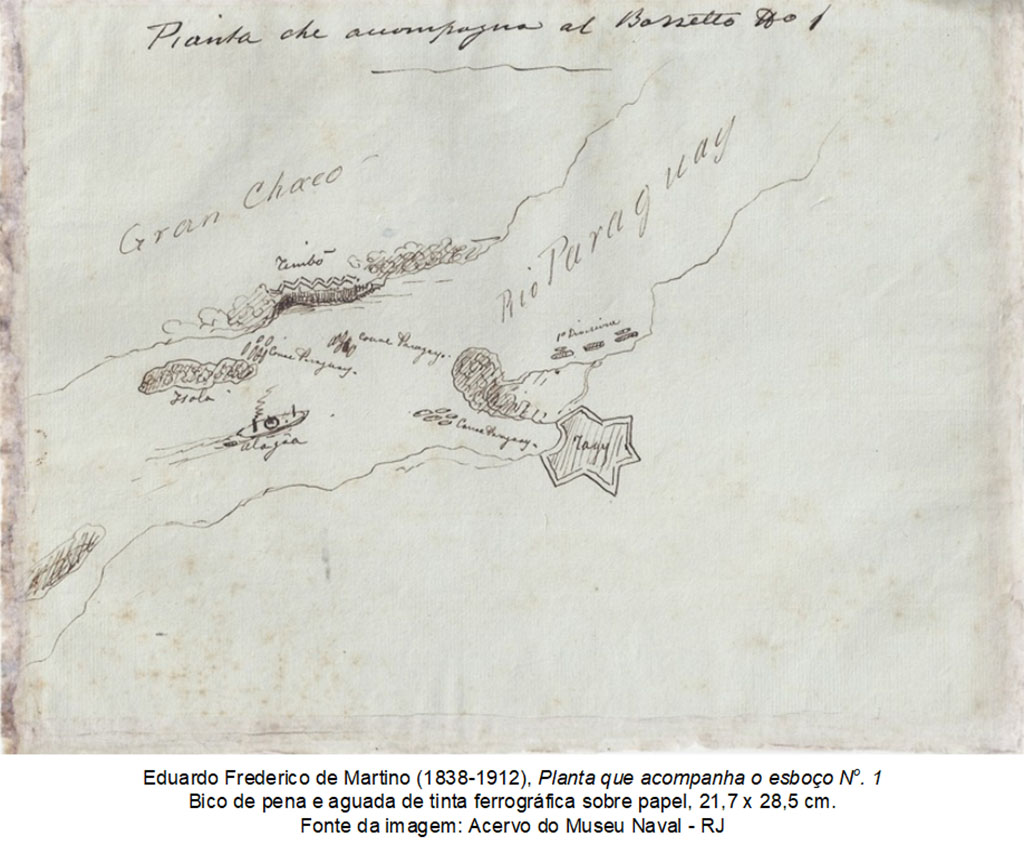 Pianta che accompagna al Bozzetto No 1
Gran Chaco
Rio Paraguay
Timbó
1ª Divisione
Canoe Paraguay.
Canoe Paraguay.
Isola
Alagôa
Canoe Paraguay.
Tayy
Eduardo Frederico de Martino (1838-1912), Planta que acompanha o esboço Nº. 1
Bico de pena e aguada de tinta ferrográfica sobre papel, 21,7 x 28,5 cm.
Fonte da imagem: Acervo do Museu Naval - RJ